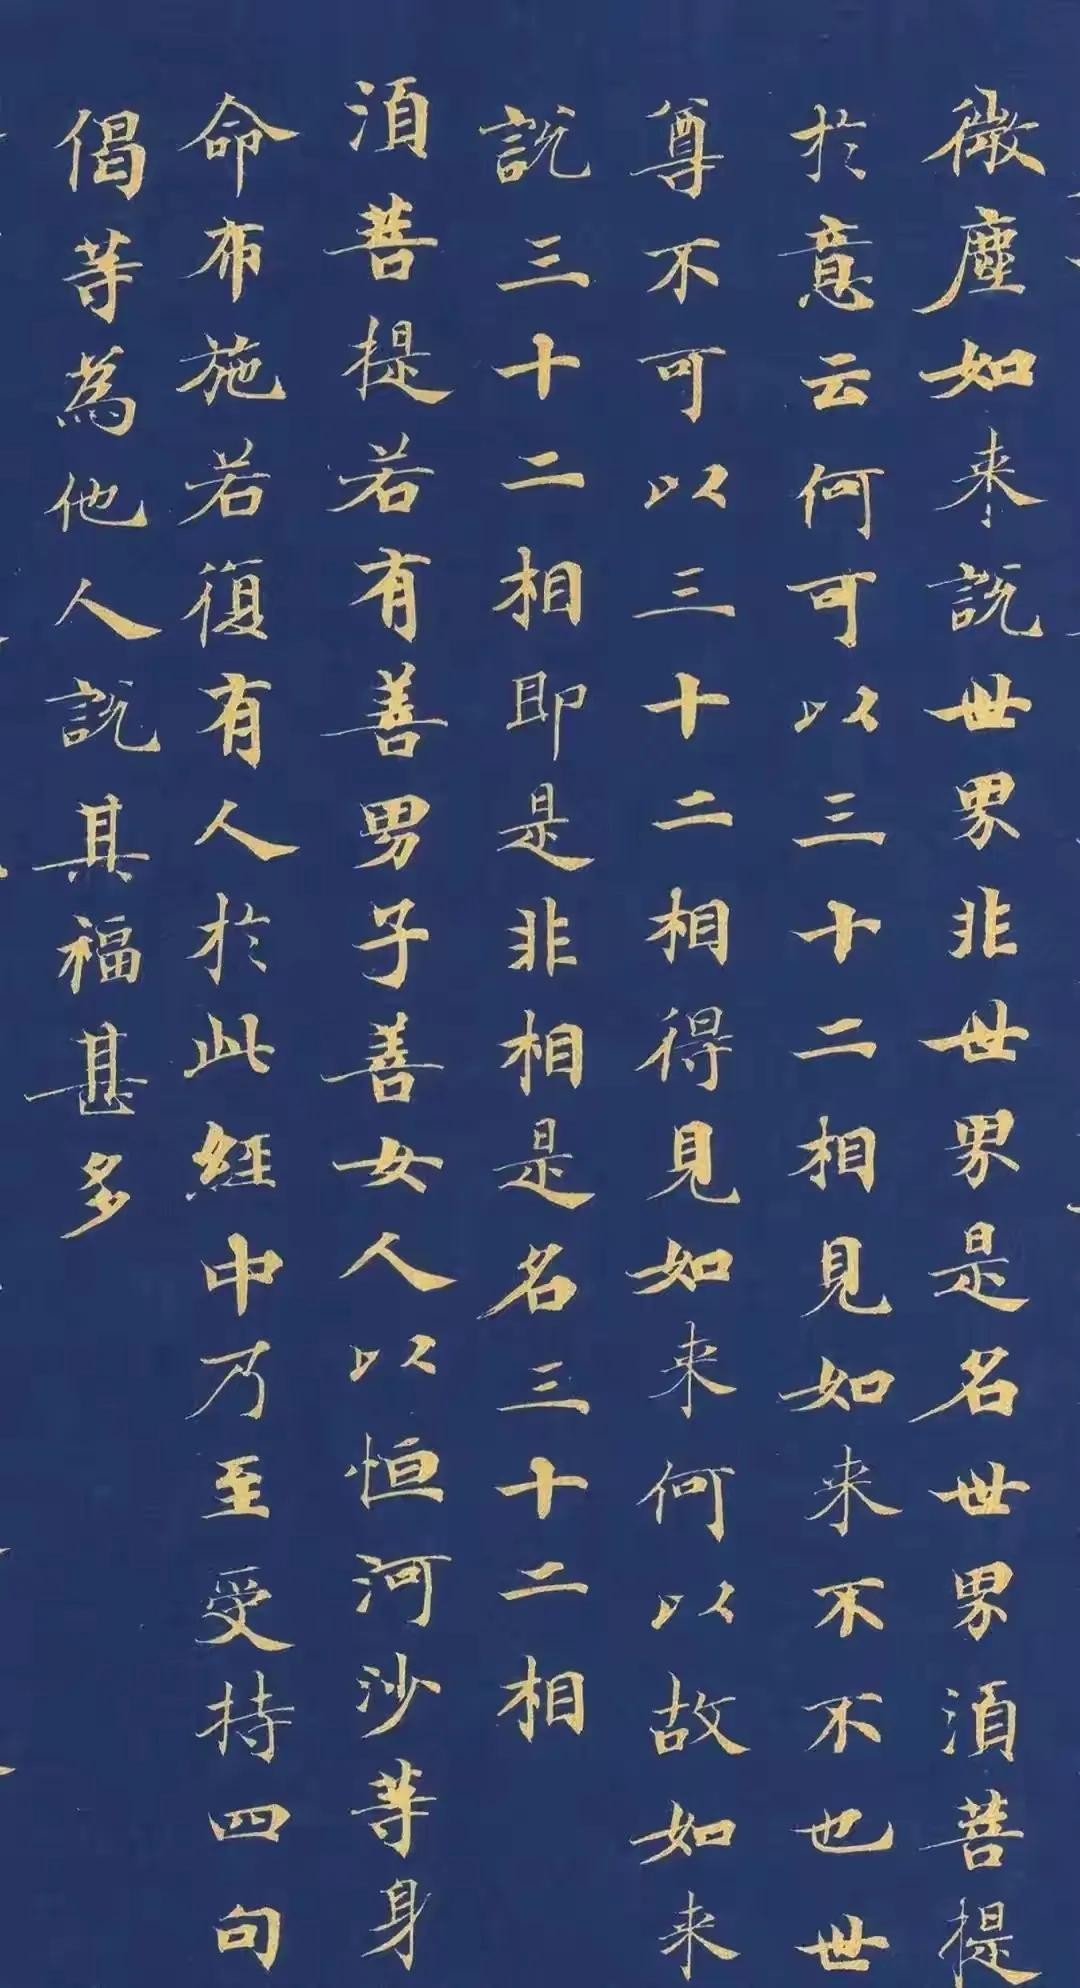 微塵如来說世界非世界是名世界須菩提
於意云何可以三十二相見如来不不也世
尊不可以三十二相得見如来何以故如来
說三十二相即是非相是名三十二相
須菩提若有善男子善女人以恒河沙等身
命布施若復有人於此經中乃至受持四句
偈等為他人說其福甚多